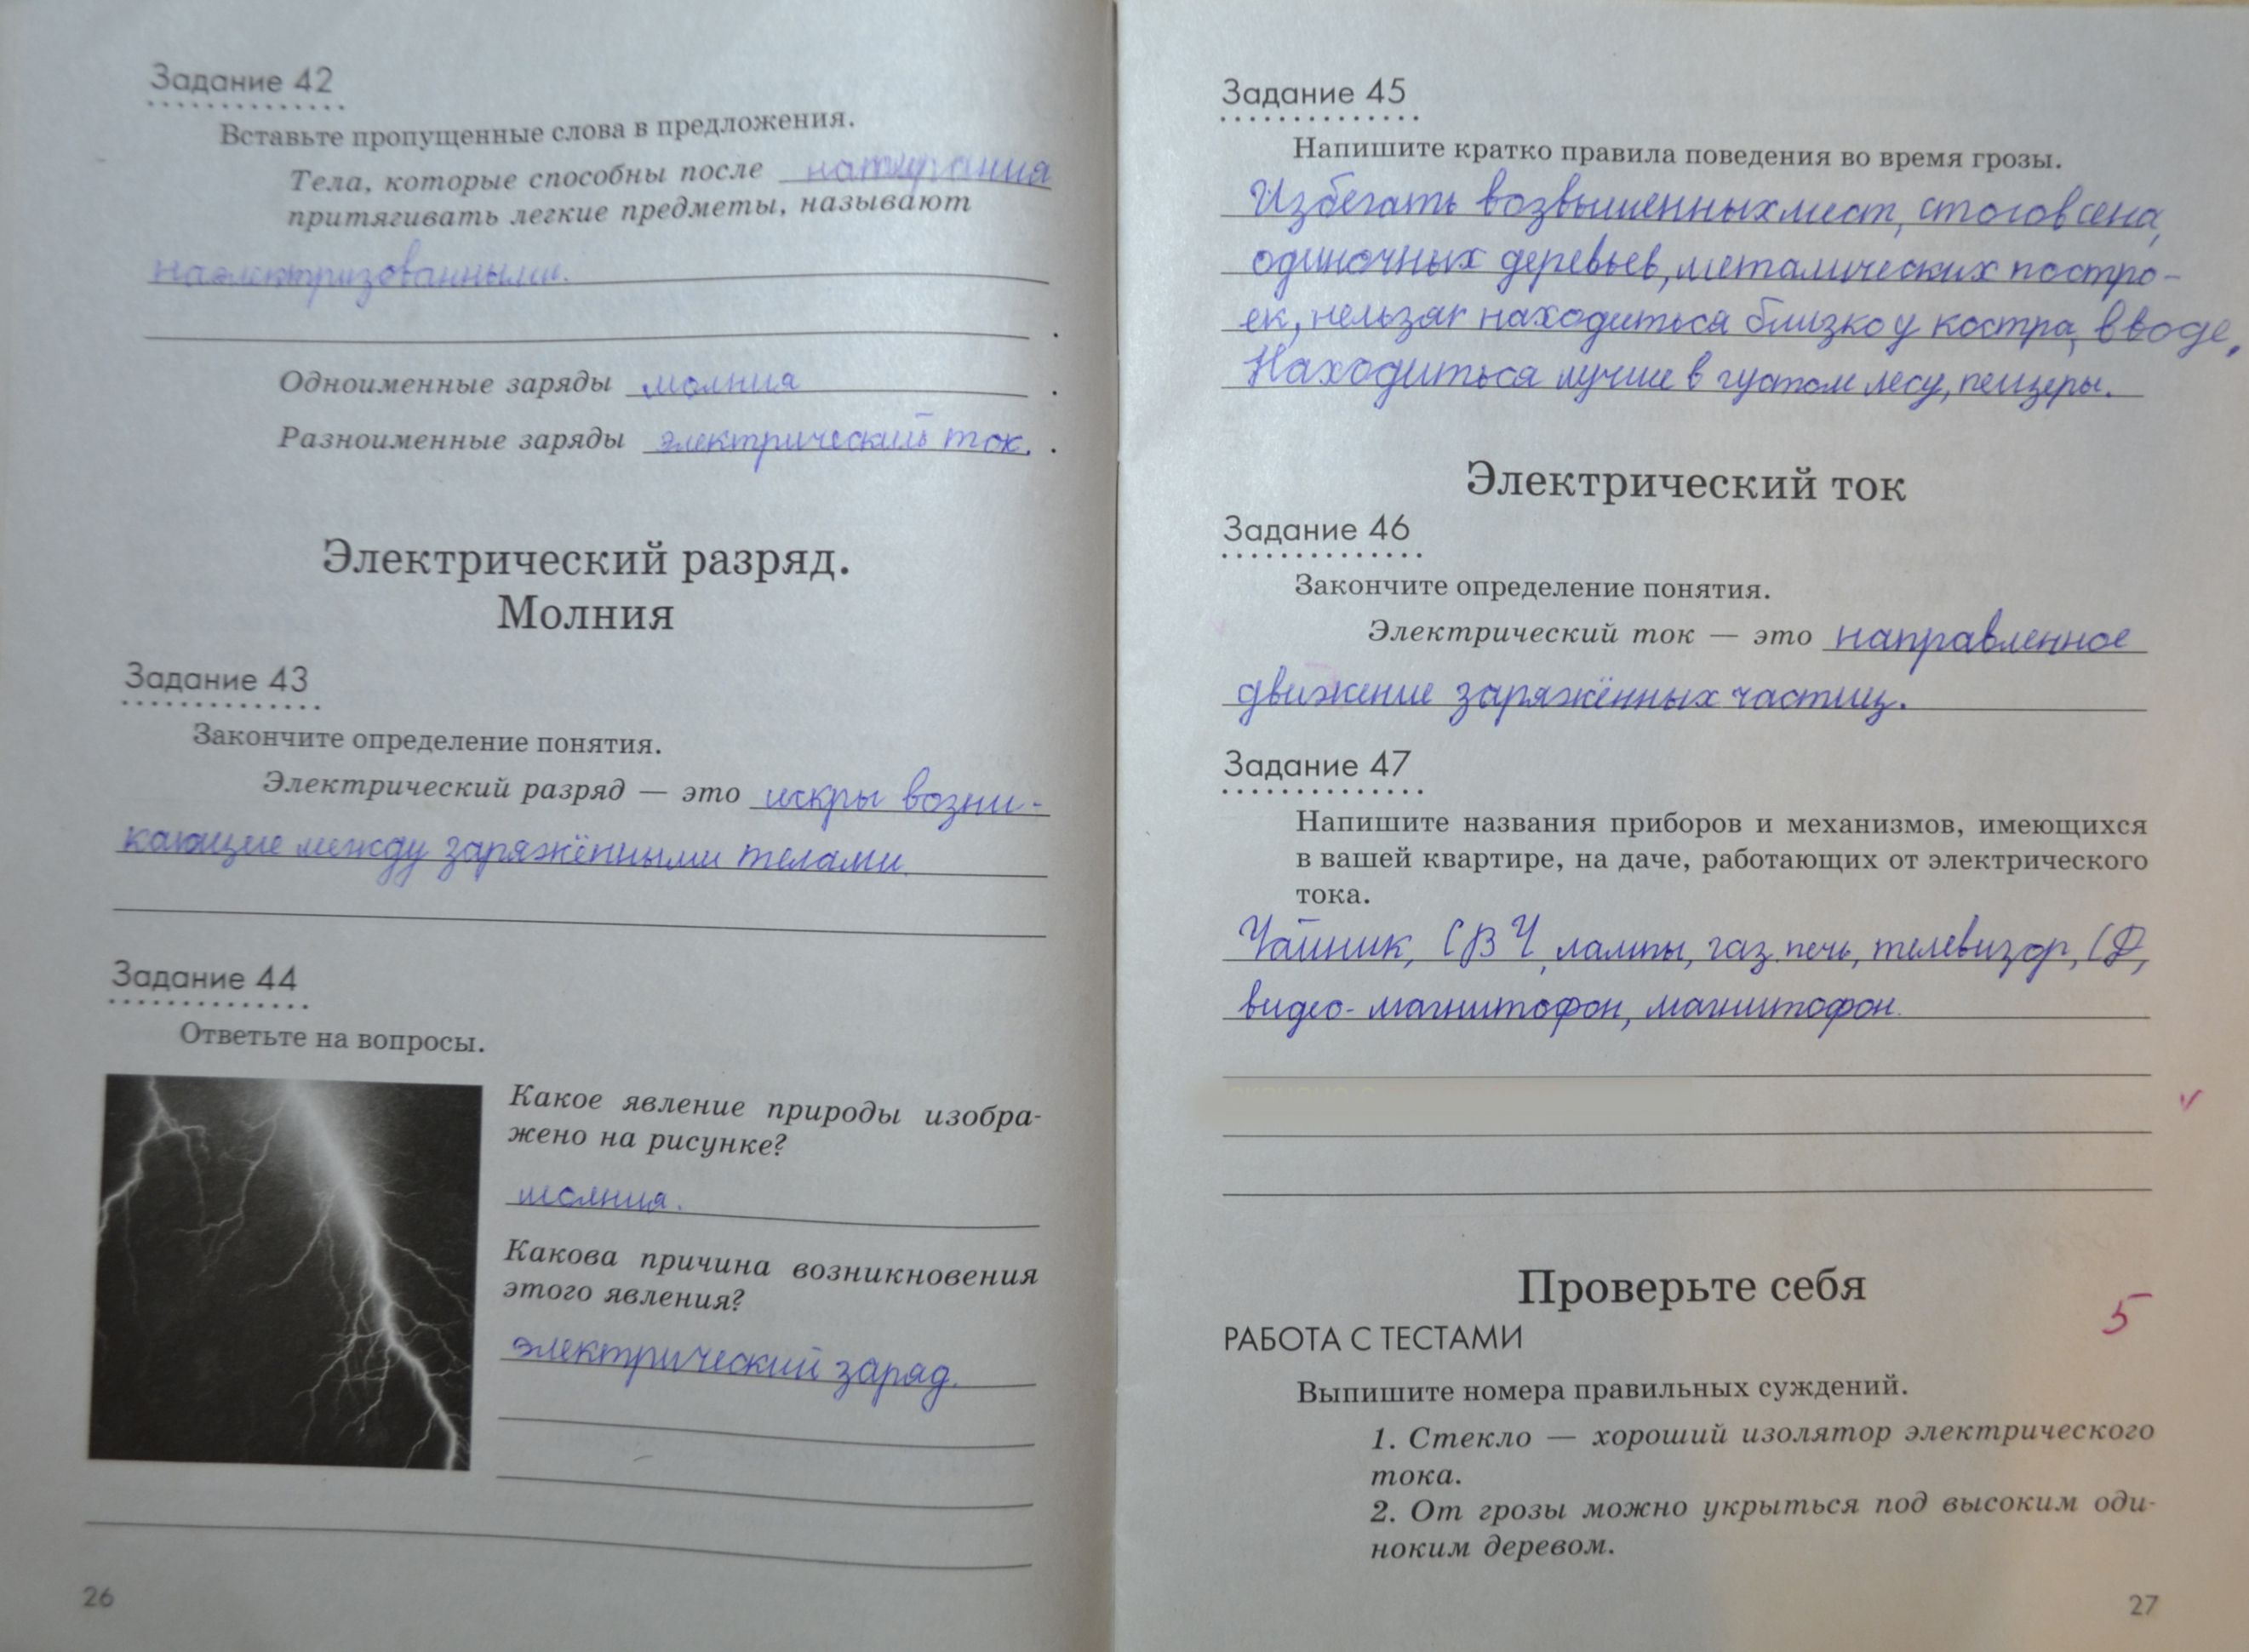 Задание 42
Вставьте пропущенные слова в предложения.
Тела, которые способны после натирания
притягивать легкие предметы, называют
наэлектризованными.
.
Одноименные заряды молния .
Разноименные заряды электрический ток. .
Электрический разряд.
Молния
Задание 43
Закончите определение понятия.
Электрический разряд — это искры возни-
кающие между заряжёнными телами.
Задание 44
Ответьте на вопросы.
Какое явление природы изобра-
жено на рисунке?
молния.
Какова причина возникновения
этого явления?
электрический заряд.
26
Задание 45
Напишите кратко правила поведения во время грозы.
Избегать возвышенных мест, стогов сена,
одиночных деревьев, металических постро-
ек, нельзя находиться близко у костра, в воде,
Находиться лучше в густом лесу, пещеры.
Электрический ток
Задание 46
Закончите определение понятия.
Электрический ток — это направленное
движение заряжённых частиц.
Задание 47
Напишите названия приборов и механизмов, имеющихся
в вашей квартире, на даче, работающих от электрического
тока.
Чайник, СВЧ, лампы, газ. печь, телевизор, CD,
видео-магнитофон, магнитофон.
Проверьте себя
5
РАБОТА С ТЕСТАМИ
Выпишите номера правильных суждений.
1. Стекло — хороший изолятор электрического
тока.
2. От грозы можно укрыться под высоким оди-
ноким деревом.
27